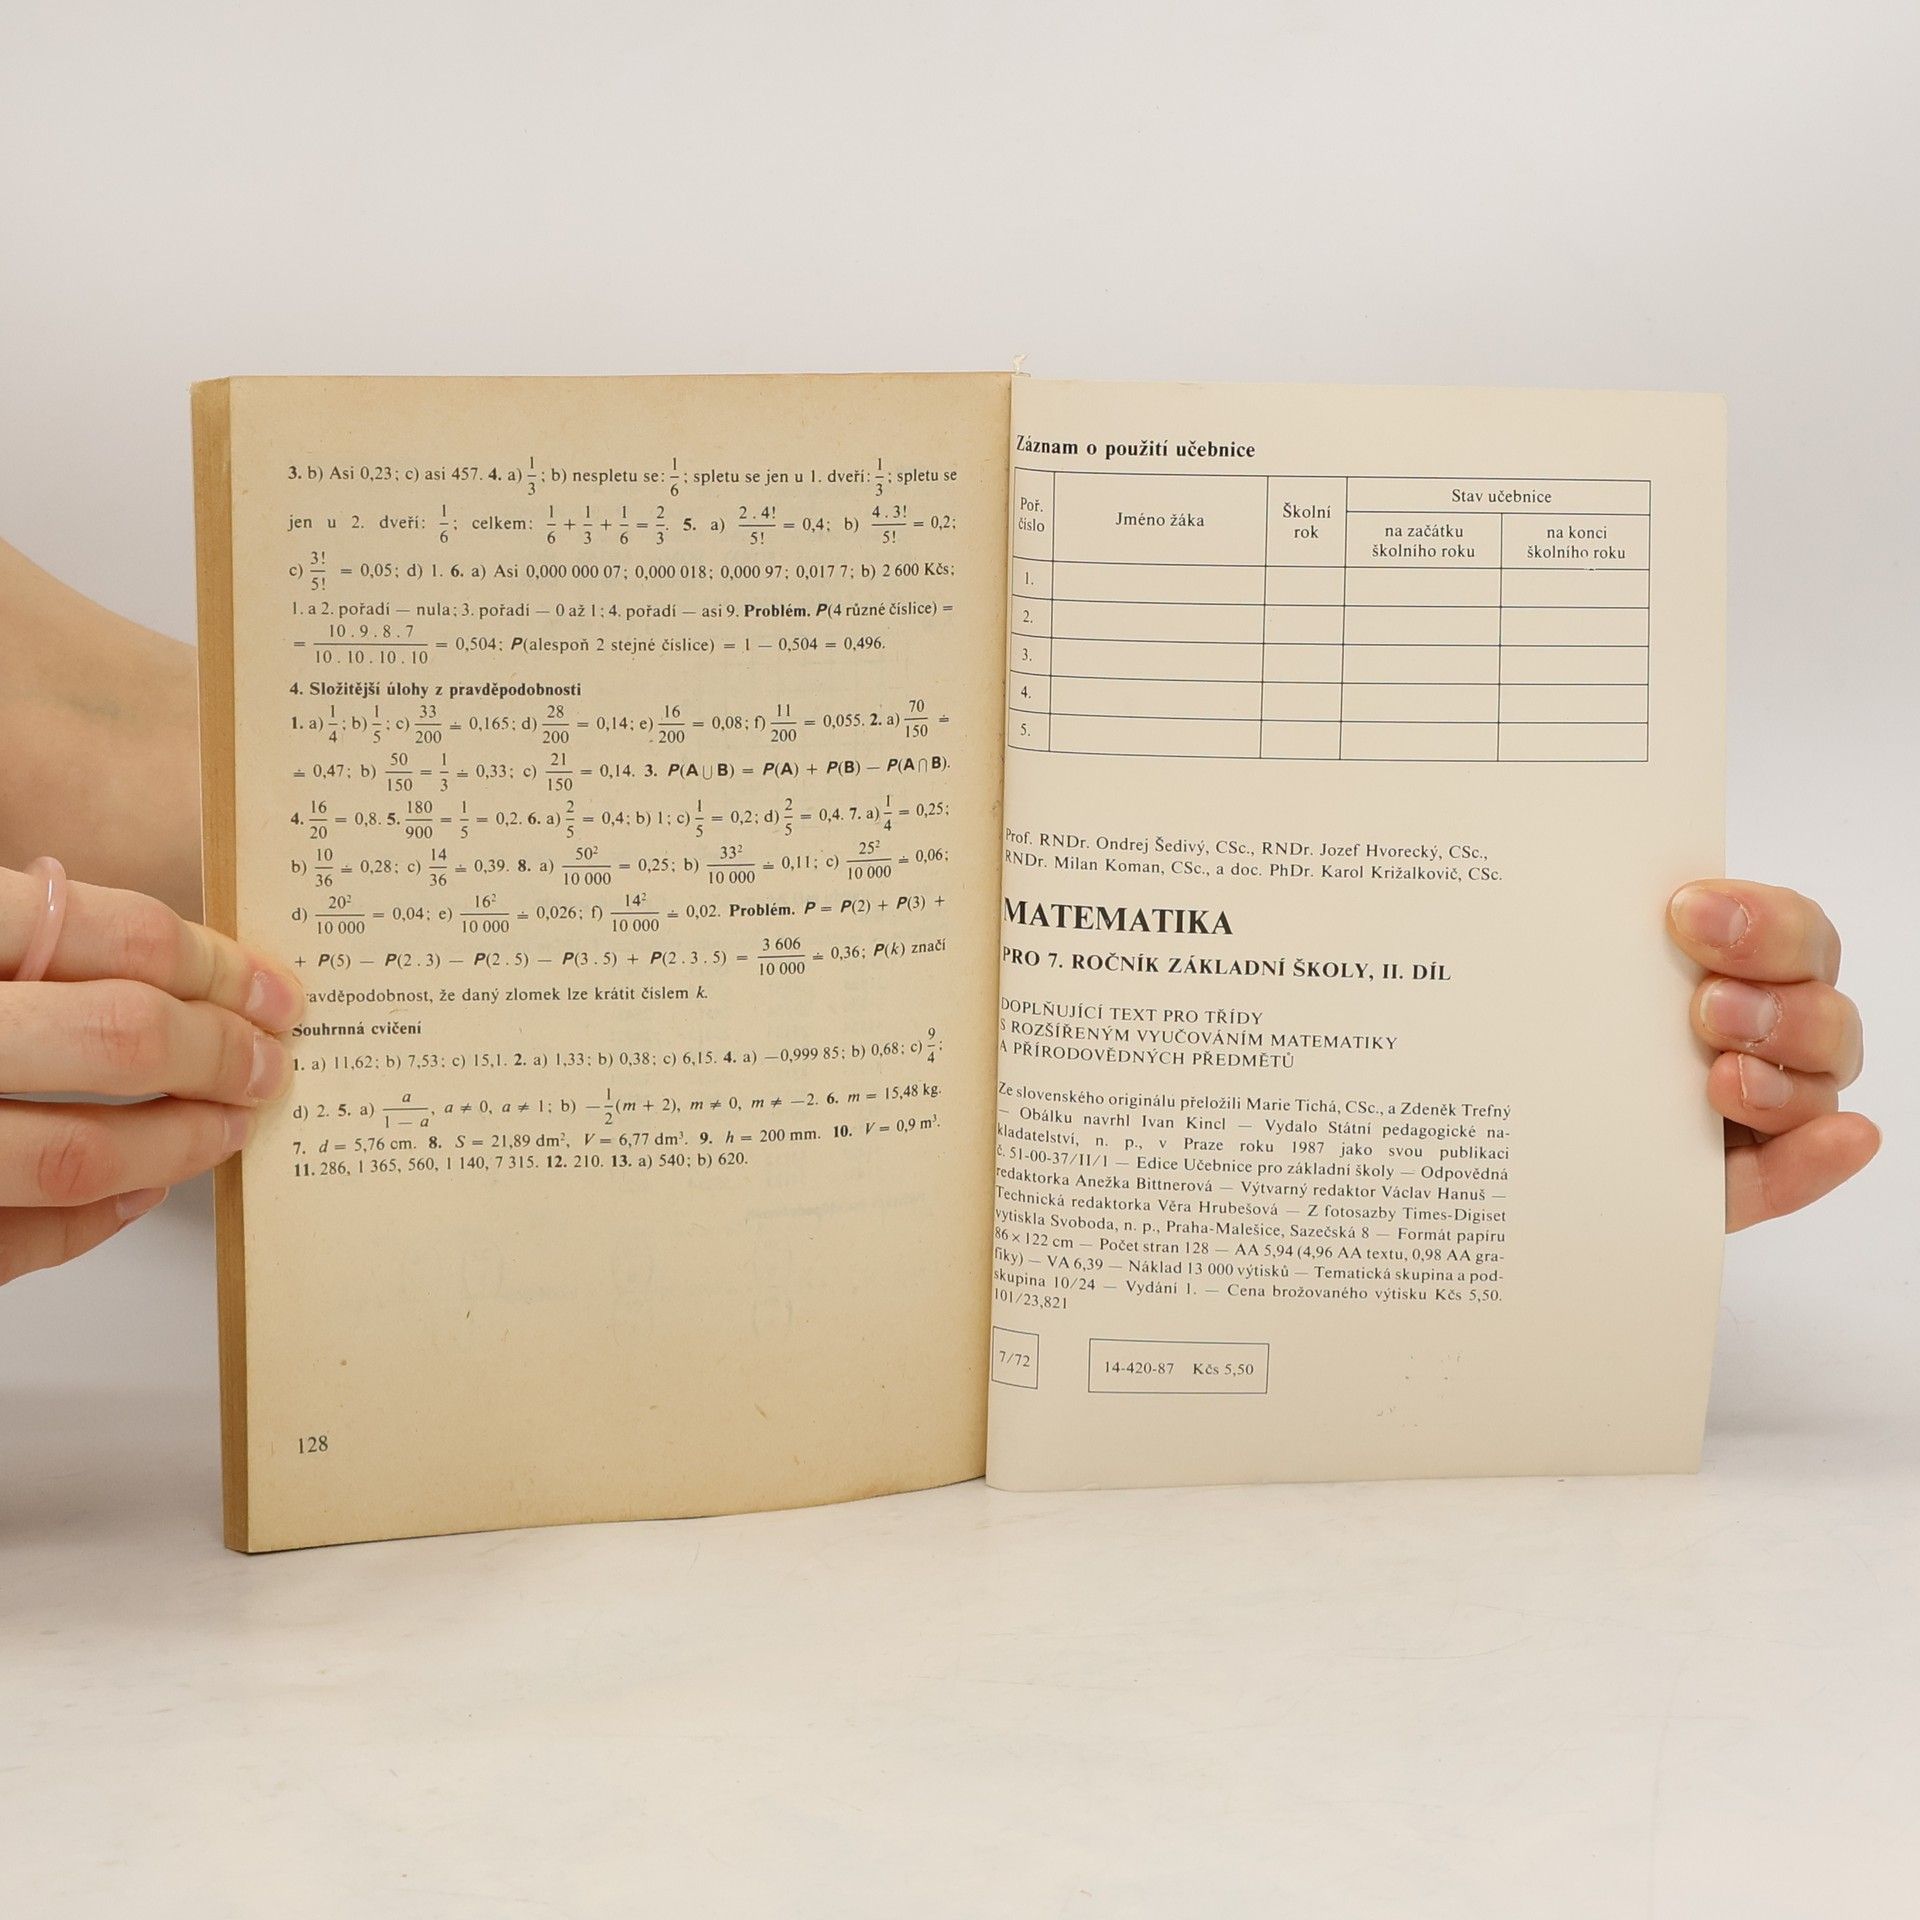 3. b) Asi 0,23; c) asi 457. 4. a) 1/3; b) nespletu se: 1/6; spletu se jen u 1. dveří: 1/3; spletu se
jen u 2. dveří: 1/6; celkem: 1/6 + 1/3 + 1/6 = 2/3. 5. a) 2 . 4!/5! = 0,4; b) 4 . 3!/5! = 0,2;
c) 3!/5! = 0,05; d) 1. 6. a) Asi 0,000 000 07; 0,000 018; 0,000 97; 0,017 7; b) 2 600 Kčs;
1. a 2. pořadí — nula; 3. pořadí — 0 až 1; 4. pořadí — asi 9. Problém. P(4 různé číslice) =
= 10 . 9 . 8 . 7/10 . 10 . 10 . 10 = 0,504; P(alespoň 2 stejné číslice) = 1 — 0,504 = 0,496.
4. Složitější úlohy z pravděpodobnosti
1. a) 1/4; b) 1/5; c) 33/200 ≐ 0,165; d) 28/200 = 0,14; e) 16/200 = 0,08; f) 11/200 = 0,055. 2. a) 70/150 ≐
≐ 0,47; b) 50/150 = 1/3 ≐ 0,33; c) 21/150 = 0,14. 3. P(A ∪ B) = P(A) + P(B) — P(A ∩ B).
4. 16/20 = 0,8. 5. 180/900 = 1/5 = 0,2. 6. a) 2/5 = 0,4; b) 1; c) 1/5 = 0,2; d) 2/5 = 0,4. 7. a) 1/4 = 0,25;
b) 10/36 ≐ 0,28; c) 14/36 ≐ 0,39. 8. a) 50²/10 000 = 0,25; b) 33²/10 000 ≐ 0,11; c) 25²/10 000 ≐ 0,06;
d) 20²/10 000 = 0,04; e) 16²/10 000 ≐ 0,026; f) 14²/10 000 ≐ 0,02. Problém. P = P(2) + P(3) +
+ P(5) — P(2 . 3) — P(2 . 5) — P(3 . 5) + P(2 . 3 . 5) = 3 606/10 000 ≐ 0,36; P(k) značí
ravděpodobnost, že daný zlomek lze krátit číslem k.
Souhrnná cvičení
1. a) 11,62; b) 7,53; c) 15,1. 2. a) 1,33; b) 0,38; c) 6,15. 4. a) —0,999 85; b) 0,68; c) 9/4;
d) 2. 5. a) a/1 — a, a ≠ 0, a ≠ 1; b) —1/2(m + 2), m ≠ 0, m ≠ —2. 6. m = 15,48 kg.
7. d = 5,76 cm. 8. S = 21,89 dm², V = 6,77 dm³. 9. h = 200 mm. 10. V = 0,9 m³.
11. 286, 1 365, 560, 1 140, 7 315. 12. 210. 13. a) 540; b) 620.
128
Záznam o použití učebnice
Poř. číslo
Jméno žáka
Školní rok
Stav učebnice
na začátku školního roku
na konci školního roku
1.
2.
3.
4.
5.
Prof. RNDr. Ondrej Šedivý, CSc., RNDr. Jozef Hvorecký, CSc.,
RNDr. Milan Koman, CSc., a doc. PhDr. Karol Križalkovič, CSc.
MATEMATIKA
PRO 7. ROČNÍK ZÁKLADNÍ ŠKOLY, II. DÍL
DOPLŇUJÍCÍ TEXT PRO TŘÍDY
S ROZŠÍŘENÝM VYUČOVÁNÍM MATEMATIKY
A PŘÍRODOVĚDNÝCH PŘEDMĚTŮ
Ze slovenského originálu přeložili Marie Tichá, CSc., a Zdeněk Trefný
— Obálku navrhl Ivan Kincl — Vydalo Státní pedagogické na-
kladatelství, n. p., v Praze roku 1987 jako svou publikaci
č. 51-00-37/II/1 — Edice Učebnice pro základní školy — Odpovědná
redaktorka Anežka Bittnerová — Výtvarný redaktor Václav Hanuš —
Technická redaktorka Věra Hrubešová — Z fotosazby Times-Digiset
vytiskla Svoboda, n. p., Praha-Malešice, Sazečská 8 — Formát papíru
86 × 122 cm — Počet stran 128 — AA 5,94 (4,96 AA textu, 0,98 AA gra-
fiky) — VA 6,39 — Náklad 13 000 výtisků — Tematická skupina a pod-
skupina 10/24 — Vydání 1. — Cena brožovaného výtisku Kčs 5,50.
101/23,821
7/72
14-420-87 Kčs 5,50